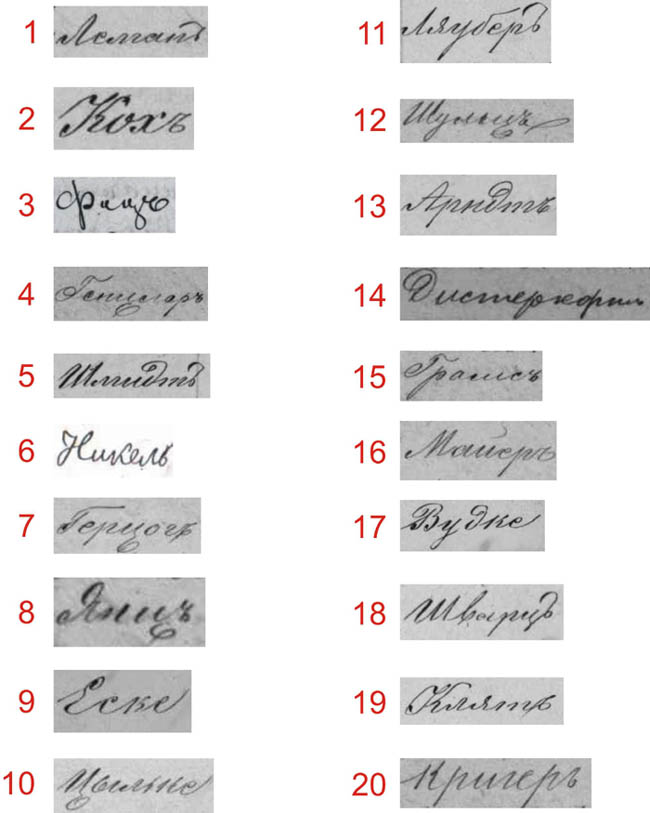 1 Леманъ
2 Кохъ
3 Фацъ
4
5 Шмидтъ
6 Никель
7 Герцогъ
8 Яницъ
9 Еске
10
11 Ляуберъ
12 Шульцъ
13 Арндтъ
14
15
16 Майеръ
17 Вудке
18 Шварцъ
19 Клятъ
20 Кригеръ